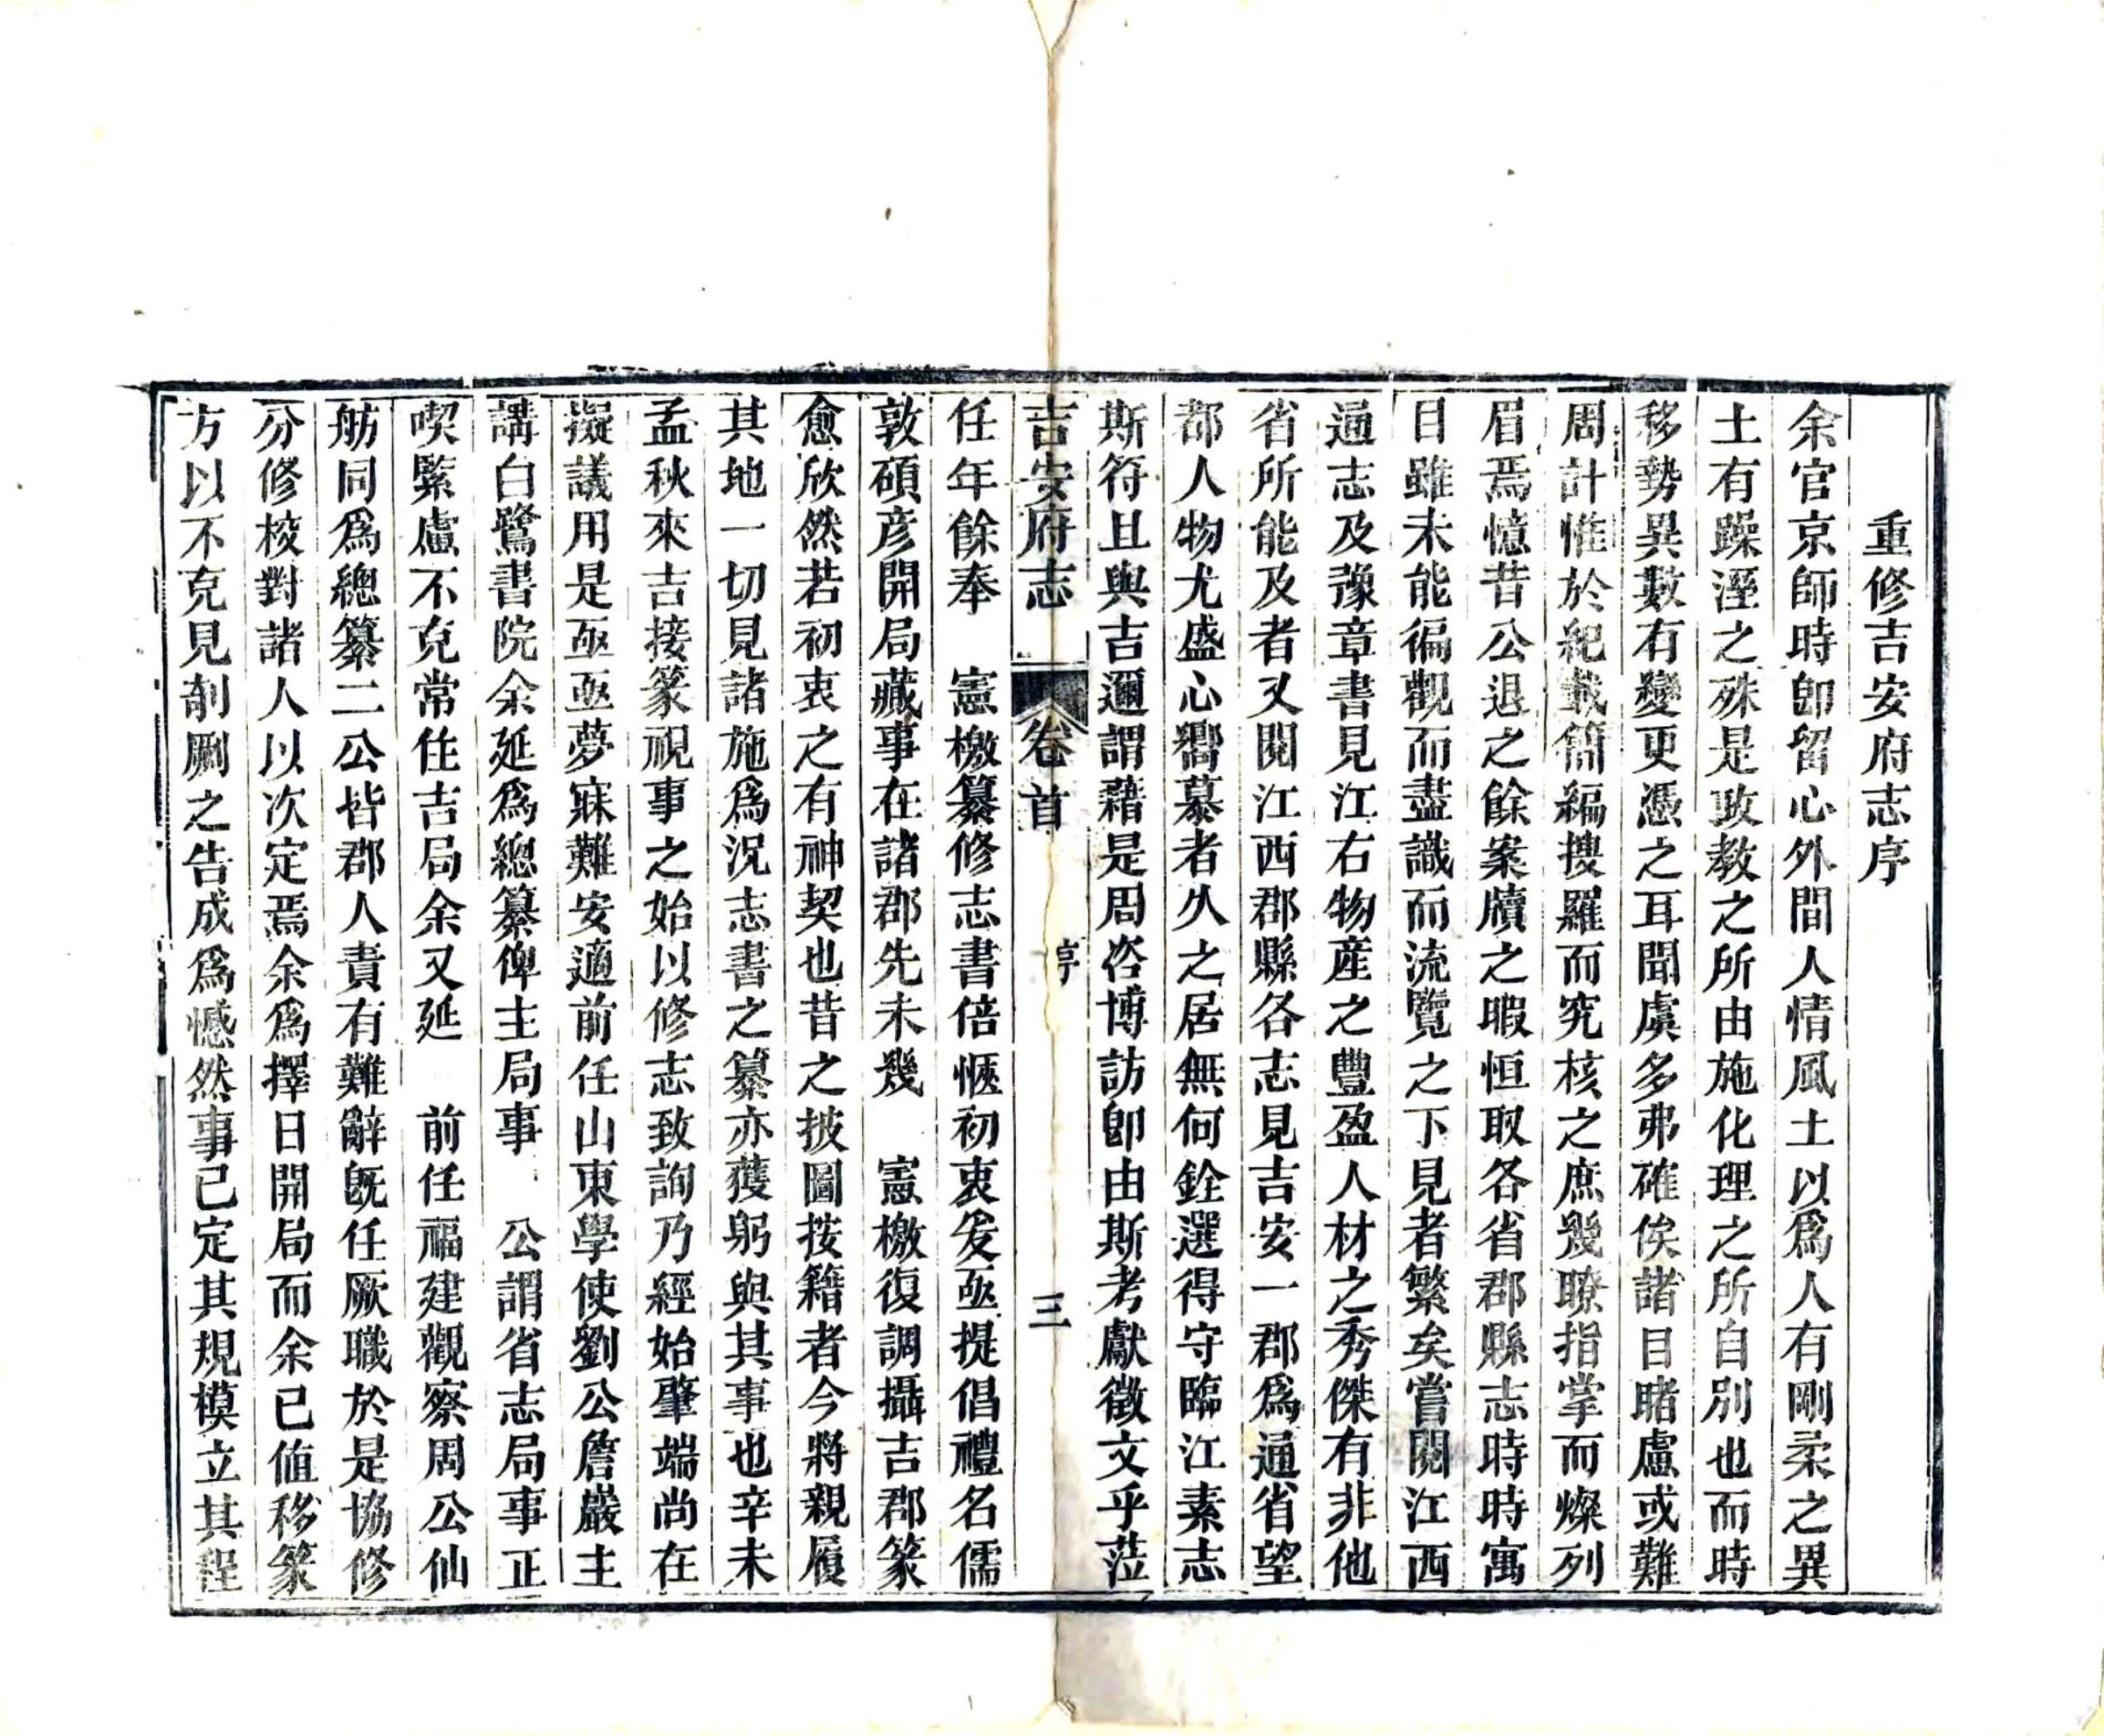 重修吉安府志序
余官京師時卽留心外間人情風土以爲人有剛柔之異
土有躁溼之殊是政教之所由施化理之所自別也而時
移勢異數有變更憑之耳聞虞多弗確俟諸目睹慮或難
周計惟於紀載簡編搜羅而究核之庶幾瞭指掌而燦列
眉焉憶昔公退之餘案牘之暇恒取各省郡縣志時時寓
目雖未能徧觀而盡識而流覽之下見者繁矣嘗閱江西
通志及豫章書見江右物產之豐盈人材之秀傑有非他
省所能及者又閱江西郡縣各志見吉安一郡爲通省望
郡人物尤盛心嚮慕者久之居無何銓選得守臨江素志
斯符且與吉邇謂藉是周咨博訪卽由斯考獻徵文乎蒞
吉安府志 卷首 序 三
任年餘奉 憲檄纂修志書倍愜初衷爰亟提倡禮名儒
敦碩彥開局蕆事在諸郡先未幾 憲檄復調攝吉郡篆
愈欣然若初衷之有神契也昔之披圖按籍者今將親履
其地一切見諸施爲況志書之纂亦獲躬與其事也辛未
孟秋來吉接篆視事之始以修志致詢乃經始肇端尚在
擬議用是亟亟夢寐難安適前任山東學使劉公詹巖主
講白鷺書院余延爲總纂俾主局事 公謂省志局事正
喫緊慮不克常住吉局余又延 前任福建觀察周公仙
舫同爲總纂二公皆郡人責有難辭旣任厥職於是協修
分修校對諸人以次定焉余爲擇日開局而余已值移篆
方以不克見剞劂之告成爲憾然事已定其規模立其程